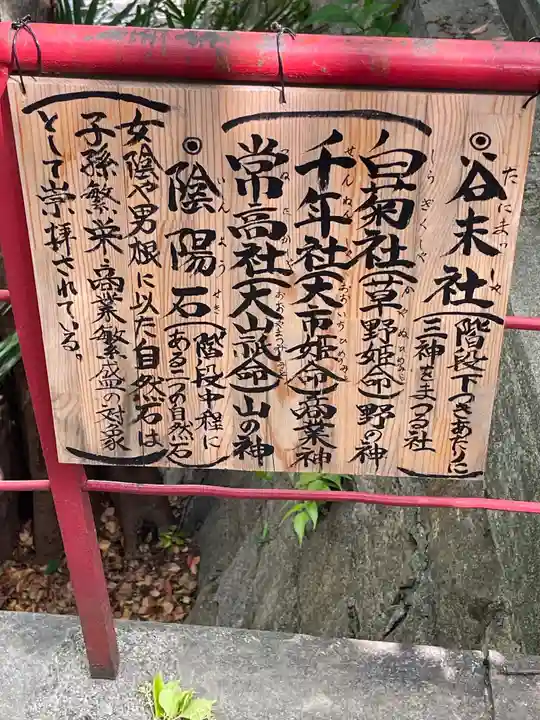 ◎谷末社(階段下つきあたりに
三神をまつる社)
白菊社(草野姫命)野の神
千年社(大市姫命)商業神
常高社(大山祇命)山の神
◎陰陽石(階段中程に
ある二つの自然石)
女陰や男根に以た自然石は
子孫繁栄・商業繁盛の対象
として崇拝されている。